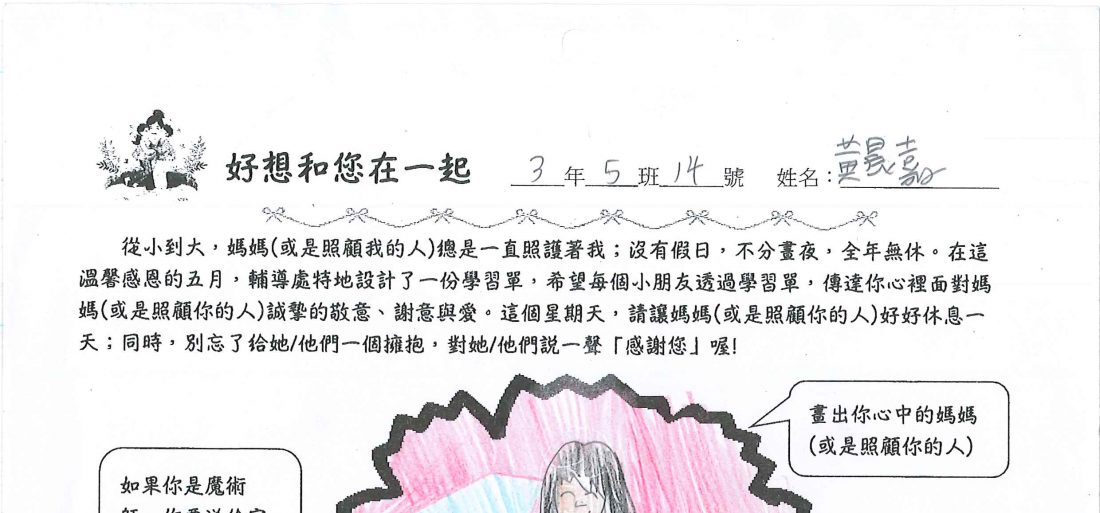 好想和您在一起 3年5班14號 姓名:黃晨嘉
從小到大,媽媽(或是照顧我的人)總是一直照護著我;沒有假日,不分晝夜,全年無休。在這
溫馨感恩的五月,輔導處特地設計了一份學習單,希望每個小朋友透過學習單,傳達你心裡面對媽
媽(或是照顧你的人)誠摯的敬意、謝意與愛。這個星期天,請讓媽媽(或是照顧你的人)好好休息一
天;同時,別忘了給她/他們一個擁抱,對她/他們說一聲「感謝您」喔!
畫出你心中的媽媽
(或是照顧你的人)
如果你是魔術